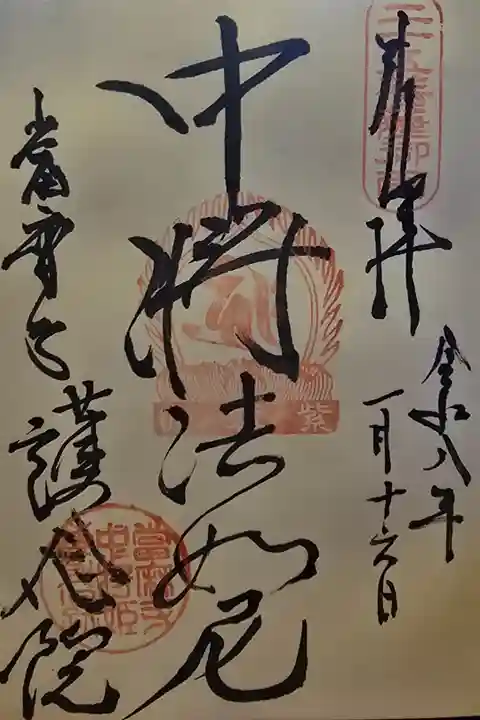 奉拝
令和八年
一月十六日
中将法如尼
當麻寺
護念院
紫
當麻寺
中将姫